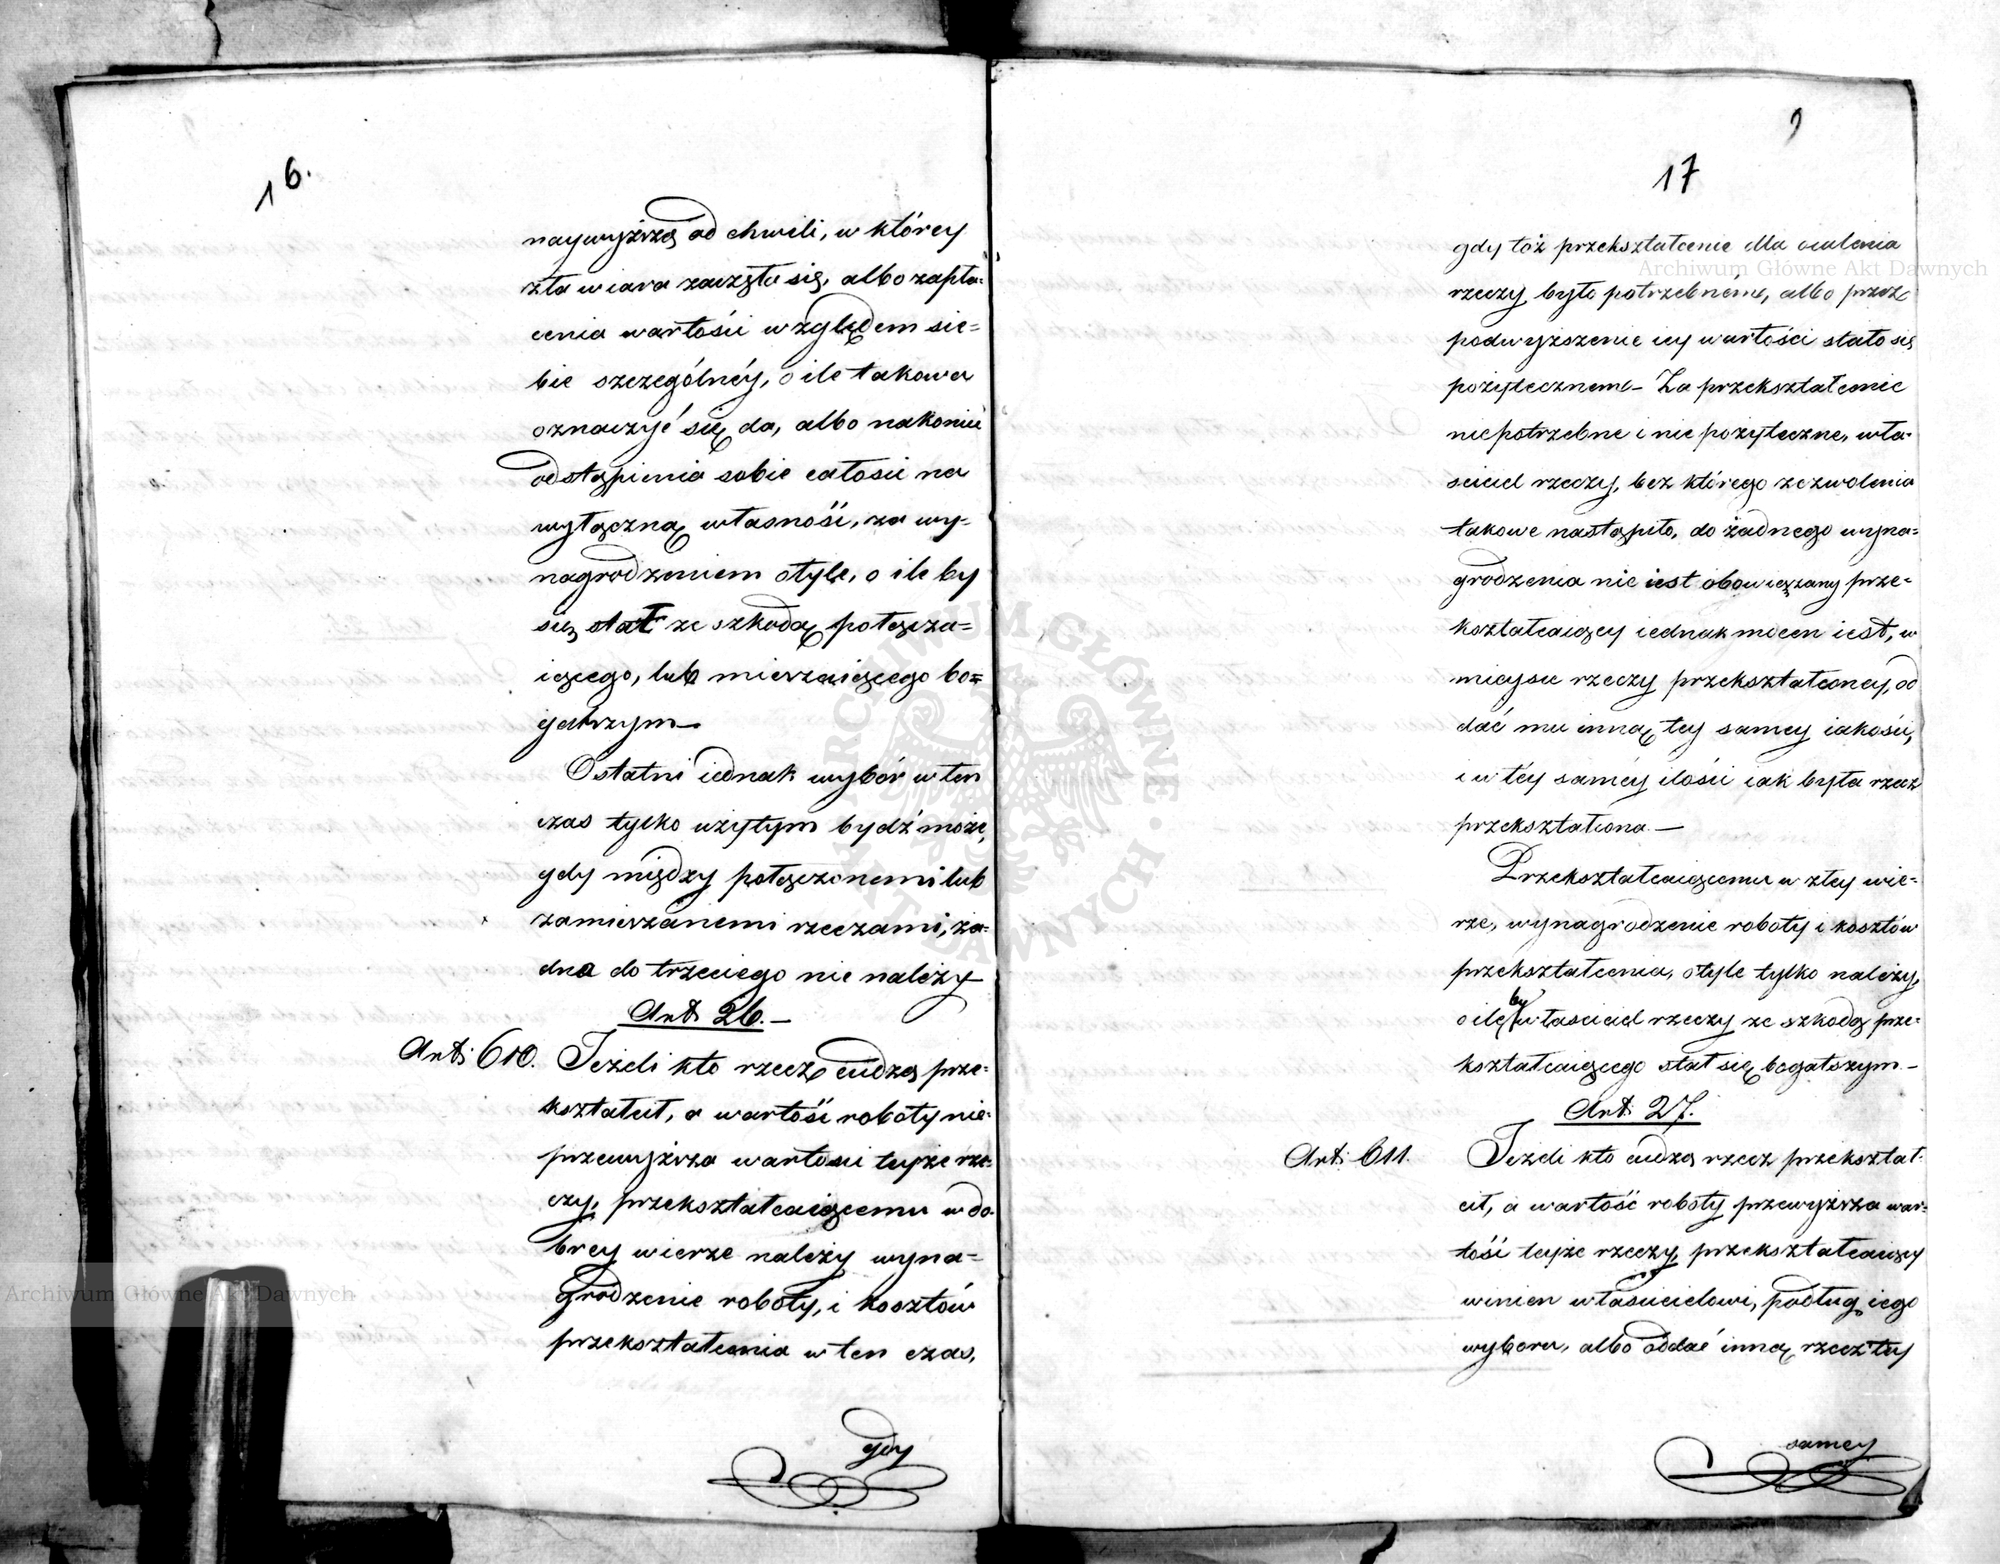 16.
naywyższą od chwili, w którey
zła wiara zaczęła się, albo zapła-
cenia wartości względem sie-
bie szczególnéy, o ile takowa
oznaczyć się da, albo nakoniec
odstąpienia sobie całości na
wyłączną własność, za wy-
nagrodzeniem otyle, o ile by
się stał ze szkodą połącza-
iącego, lub mieszaiącego bo-
gatszym—
Ostatni iednak wybór w ten
czas tylko użytym bydź może,
gdy między połączonemi lub
zamieszanemi rzeczami, ża-
dna do trzeciego nie należy
Art. 26.—
Art: 610. Jeżeli kto rzecz cudzą prze-
kształcił, a wartość roboty nie-
przewyższa wartości teyże rze-
czy, przekształcaiącemu w do-
brey wierze należy wyna-
grodzenie roboty, i kosztów
przekształcenia w ten czas,
gdy
9
17
gdy toż przekształcenie dla ocalenia
rzeczy było potrzebném, albo przez
podwyższenie iey wartości stało się
pożytecznem— Za przekształcenie
niepotrzebne i nie pożyteczne, wła-
ściciel rzeczy, bez którego zezwolenia
takowe nastąpiło, do żadnego wyna-
grodzenia nie iest obowiązany prze-
kształcaiący iednak mocen iest, w
mieyscu rzeczy przekształconey, od
dać mu inną tey samey iakości,
i w téy saméy ilości iak była rzecz
przekształcona.—
Przekształcaiącemu w złey wie-
rze, wynagrodzenie roboty i kosztów
przekształcenia, otyle tylko należy,
o ile by właściciel rzeczy ze szkodą prze-
kształcaiącego stał się bogatszym—
Art. 27.
Art: 611. Jeżeli kto cudzą rzecz przekształ-
cił, a wartość roboty przewyższa war-
tość teyże rzeczy, przekształcaiący
winien właścicielowi, podług iego
wyboru, albo oddać inną rzecz tey
samey
Archiwum Główne Akt Dawnych
Archiwum Główne Akt Dawnych
ARCHIWUM GŁÓWNE • AKT DAWNYCH •